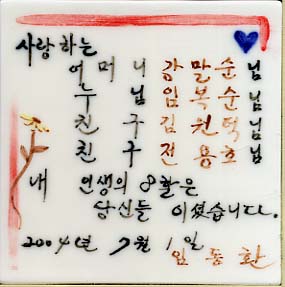 사랑하는
어머니 강말순님
누님 임복순님
친구 김원덕님
친구 전용호님
내 인생의 8할은
당신들 이셨습니다.
2004년 7월 1일
임동환